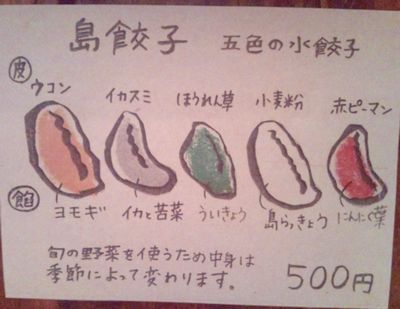 島餃子 五色の水餃子
皮
ウコン イカスミ ほうれん草 小麦粉 赤ピーマン
餡
ヨモギ イカと苦菜 ういきょう 島らっきょう にんにく葉
旬の野菜を使うため中身は
季節によって変わります。
500円